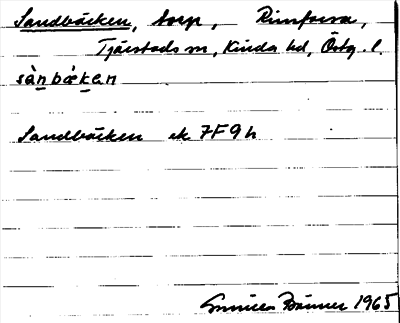 Sandbäcken, torp, Rimforsa,
Tjärstads sn, Kinda hd, Östg. l.
sànbæken
Sandbäcken ek 7F9h
Gunilla Bonner 1965